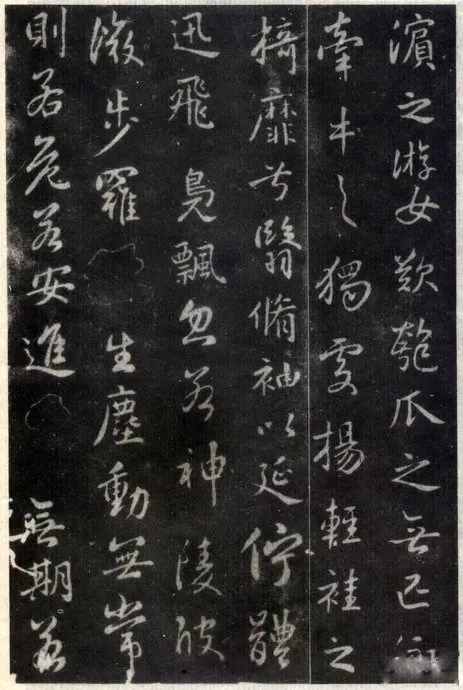 濱之游女歎匏瓜之無匹
牽牛之獨處揚輕袿之
掎靡兮翳脩袖以延佇體
迅飛鳧飄忽若神陵波
微步羅生塵動無常
則若危若安進無期若